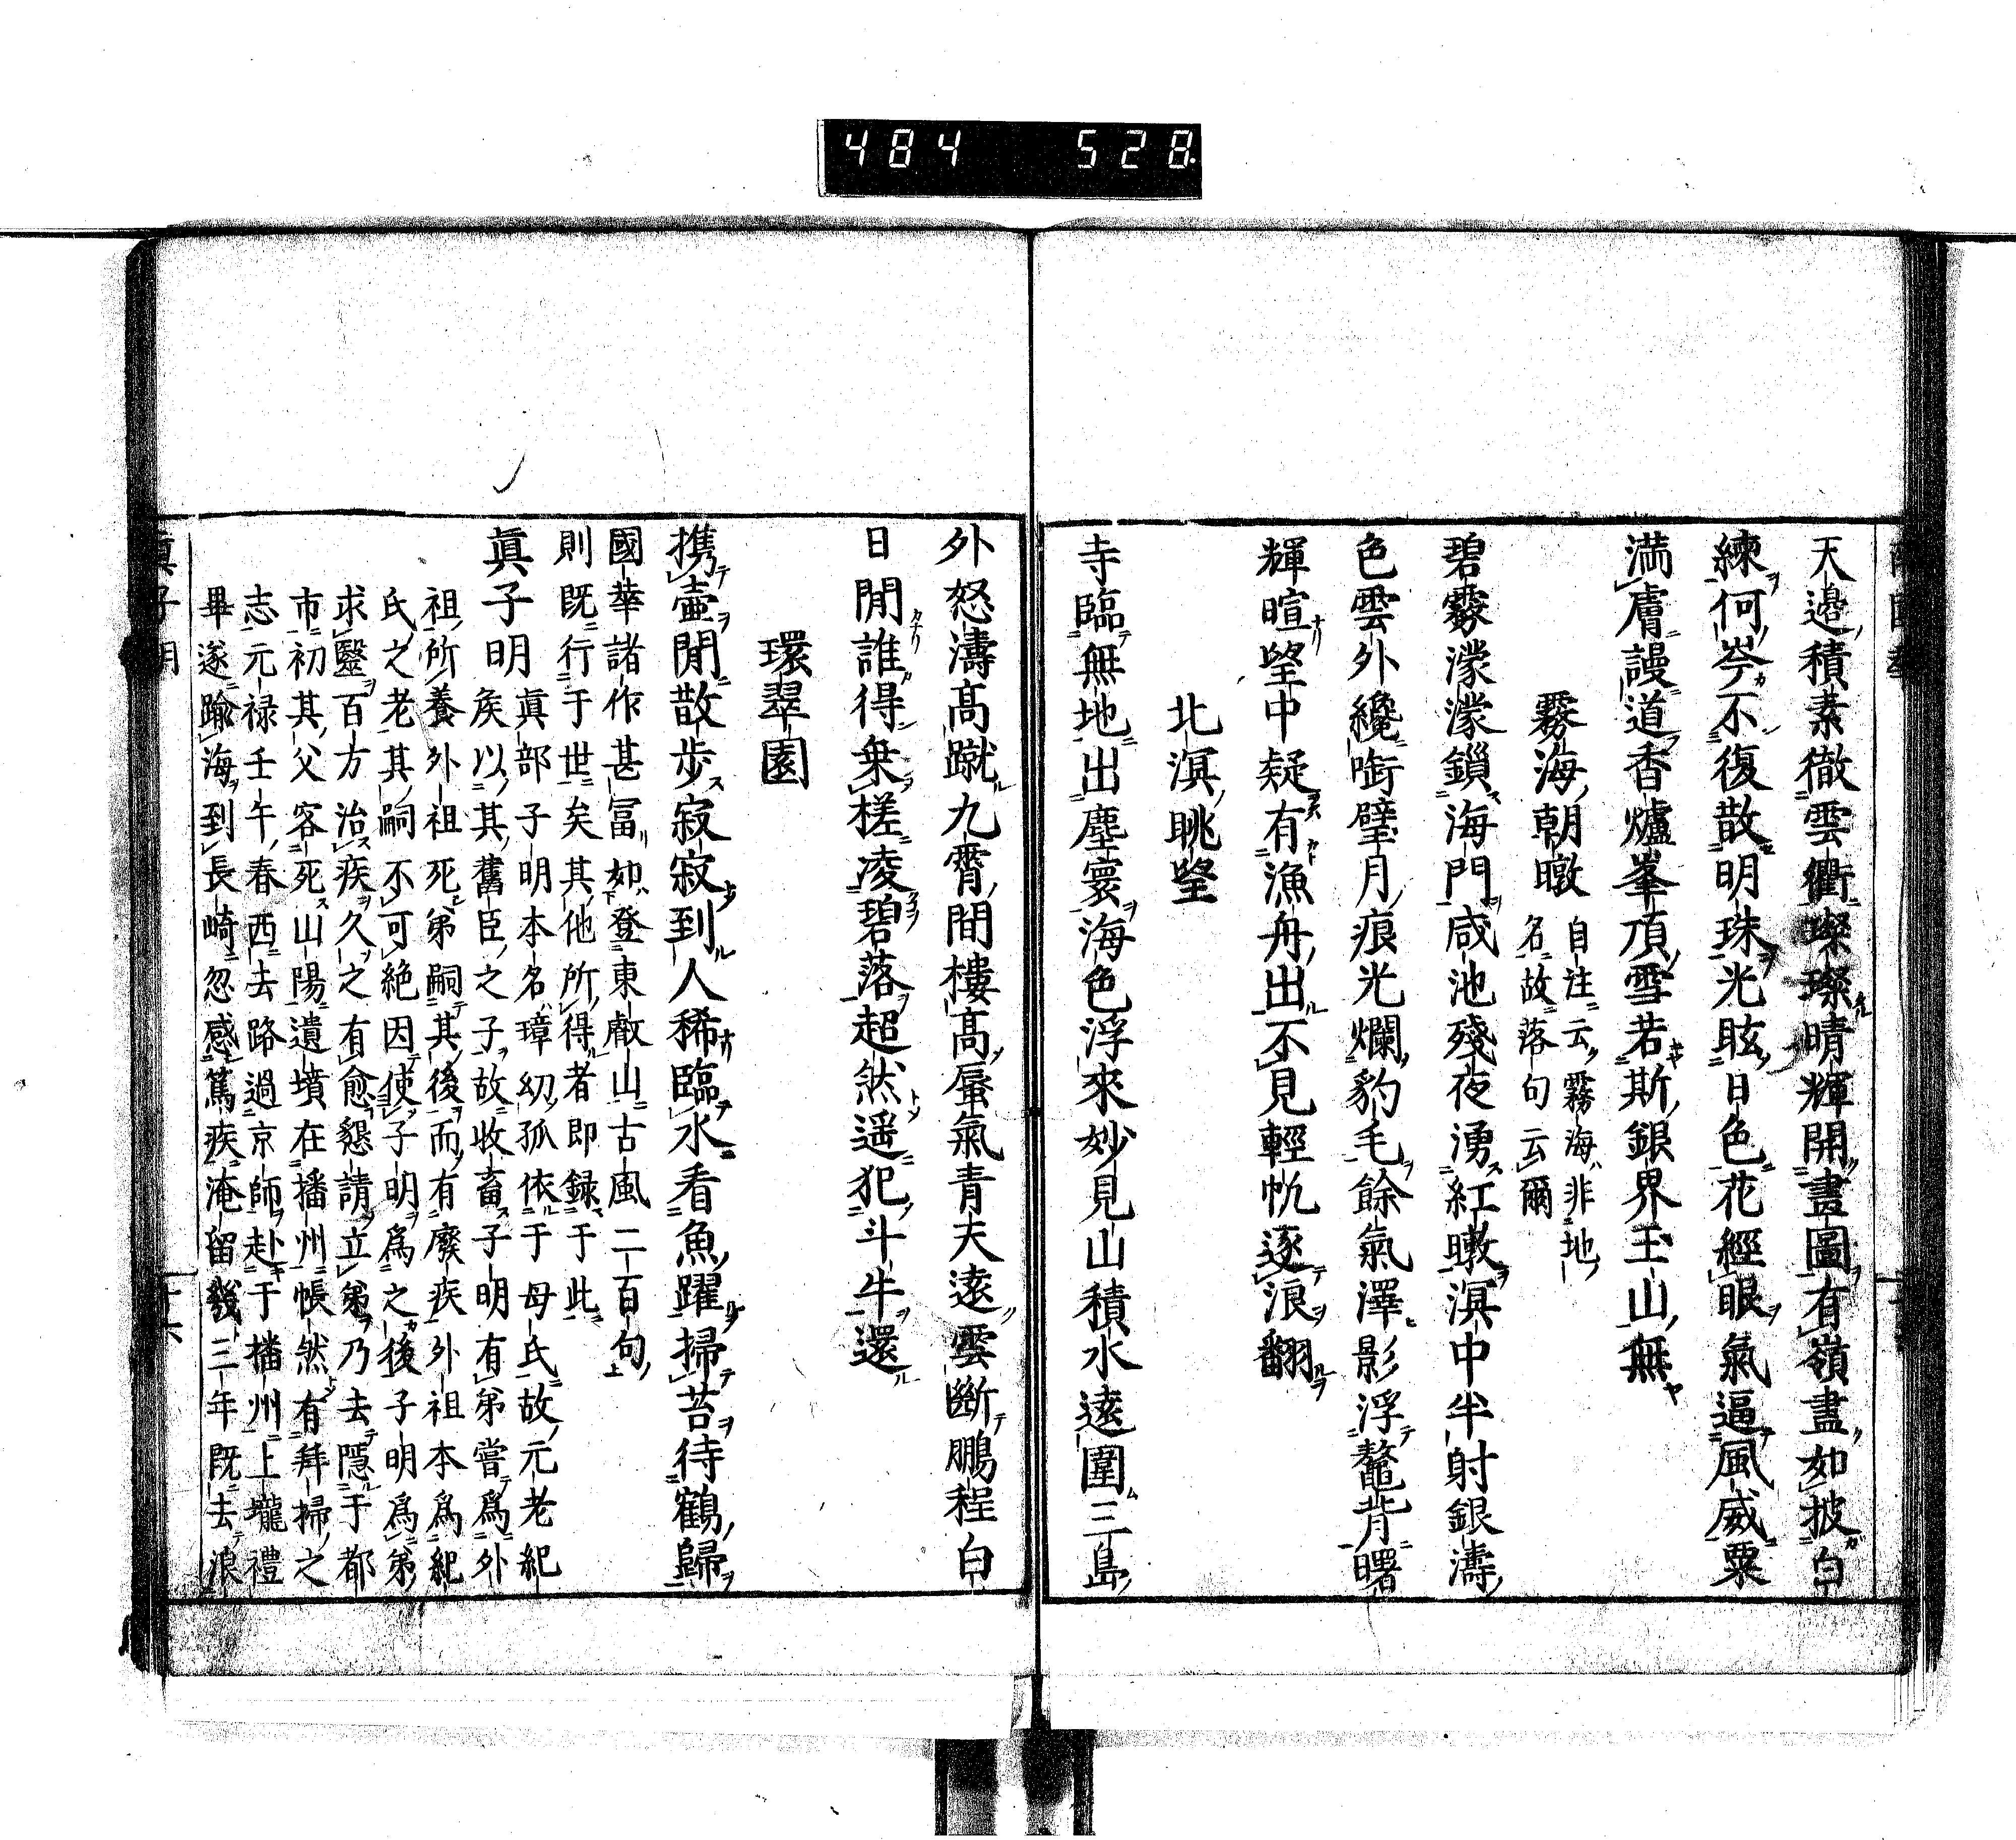 484 528
天邉積素徹雲衢璨璨晴輝開畫圖有嶺盡如披白
練何岑不復散明珠光眩日色花經眼氣逼風威粟
満膚謾道香爐峯頂雪若斯銀界玉山無
霧海朝暾 自注云霧海非地
名故落句云爾
碧霧濛濛鎖海門咸池殘夜湧紅暾溟中半射銀濤
色雲外纔啣璧月痕光爛豹毛餘氣澤影浮鼇背曙
輝暄望中疑有漁舟出不見輕帆逐浪翻
北溟眺望
寺臨無地出塵寰海色浮來妙見山積水遠圍三島
外怒濤髙蹴九霄間樓髙蜃氣青天遠雲斷鵬程白
日閒誰得乗槎凌碧落超然遥犯斗牛還
環翠園
携壷閒散歩寂寂到人稀臨水看魚躍掃苔待鶴歸
國華諸作甚冨如登東叡山古風二百句
則既行于世矣其他所得者即録于此
眞子明 眞部子明本名璋幻孤依于母氏故元老紀
矦以其舊臣之子故收畜子明有弟嘗爲外
祖所養外祖死弟嗣其後而有廢疾外祖本爲紀
氏之老其嗣不可絶因使子明爲之後子明爲弟
求醫百方治疾久之有愈懇請立弟乃去隱于都
市初其父客死山陽遺墳在播州悵然有拜掃之
志元禄壬午春西去路過京師赴于播州上壠禮
畢遂踰海到長崎忽感篤疾淹留幾三年既去浪